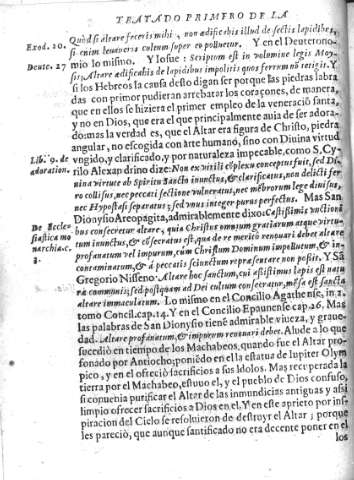 TRATADO PRIMERO DE LA
Exod. 20.
Quòd si altare feceris mihi, non ædificabis illud de sectis lapidibus,
si enim leuaueris cultum super eo polluetur. Y en el Deuterono-
Deute. 27
mio lo mismo. Y Iosue: Scriptum est in volumine legis Moy-
si, Altare ædificabis de lapidibus impolitis quos ferrum nō tetigit. Y
si los Hebreos la causa desto digan ser porque las piedras labra
das con primor pudieran arrebatar los coraçones, de manera,
que en ellos se hiziera el primer empleo de la veneraciō santa,
y no en Dios, que era el que principalmente auia de ser adora-
do: mas la verdad es, que el Altar era figura de Christo, piedra
angular, no escogida con arte humano, sino con Diuina virtud
Lib. 9. de
adoration.
vngido, y clarificado, y por naturaleza impecable, como S. Cy
rilo Alexandrino dize: Non ex virili cōplexu conceptus fuit, sed Di-
nina virtute ab Spiritu Sancto inunctus, & clarificatus, non delicti fer
ro collisus, nec peccati sectione vulneratus, nec mēbrorum lege diuisus,
nec Hypostasi separatus, sed vnus integer purus perfectus. Mas San
De Eccles-
siastica mo
narchia. c.
3
Dionysio Areopagita, admirablemente dixo: Castissimis vnctionī
bus consecretur altare, quia Christus omnium gratiarum atque virtu-
tum inunctus, & cōsecratus est, qua de re meritò renouari debet altare
profanatum vel impurum, cùm Christum Dominum impollutum, & in-
contaminatum, & à peccatis seiunctum repræsentare non possit. Y Sā
Gregorio Nisseno: Altare hoc sanctum, cui assistimus lapis est natu
ra communis, sed postquam ad Dei cultum consecratur, mēsa est sancta
altare immaculatum. Lo mismo en el Concilio Agathense, in, 2.
tomo Concil. cap. 14. Y en el Concilio Epaunense cap. 26. Mas
las palabras de San Dionysio tienē admirable viueza, y graue-
dad. Altare profanatum, & impurum renouari debet. Alude a lo que
sucediò en tiempo de los Machabeos, quando fue el Altar pro-
fonado por Antiocho, poniēdo en ella estatua de Iupiter Olym
pico, y en el ofreciò sacrificios a sus Idolos. Mas recuperada la
tierra por el Machabeo, estuuo el, y el pueblo de Dios confuso,
si conuenia purificar el Altar de las inmundicias antiguas y assi
limpio ofrecer sacrificios a Dios en el. Y en este aprieto por ins-
piracion del Cielo se resoluieron de destruyr el Altar; porque
les pareciò, que aunque santificado no era decente poner en el
los